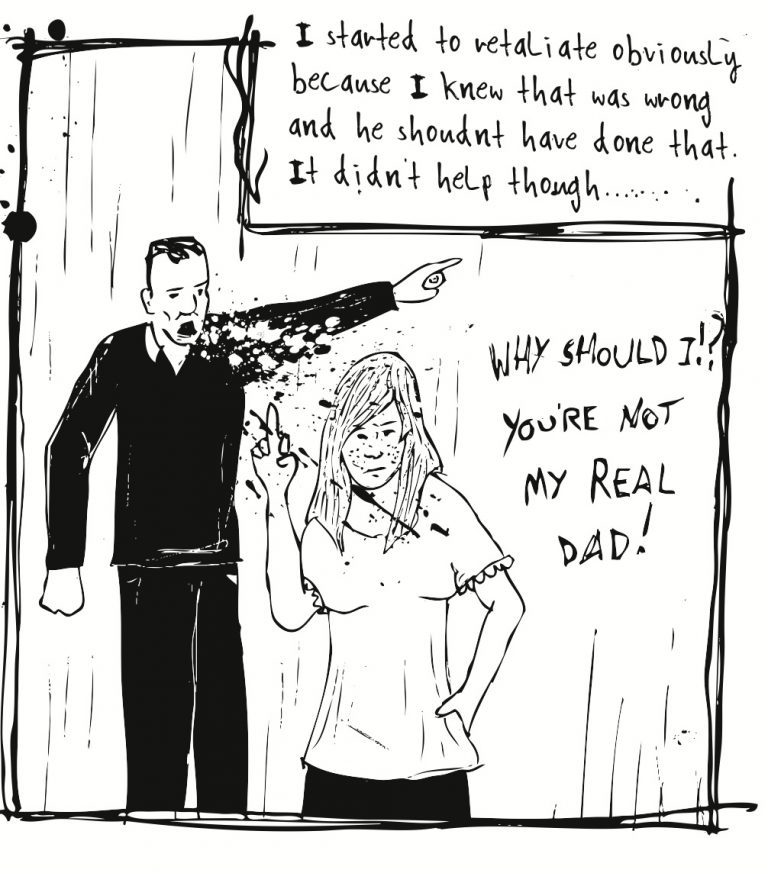 I started to retaliate obviously
because I knew that was wrong
and he shoudnt have done that.
It didn't help though.........
WHY SHOULD I!?
YOU'RE NOT
MY REAL
DAD!